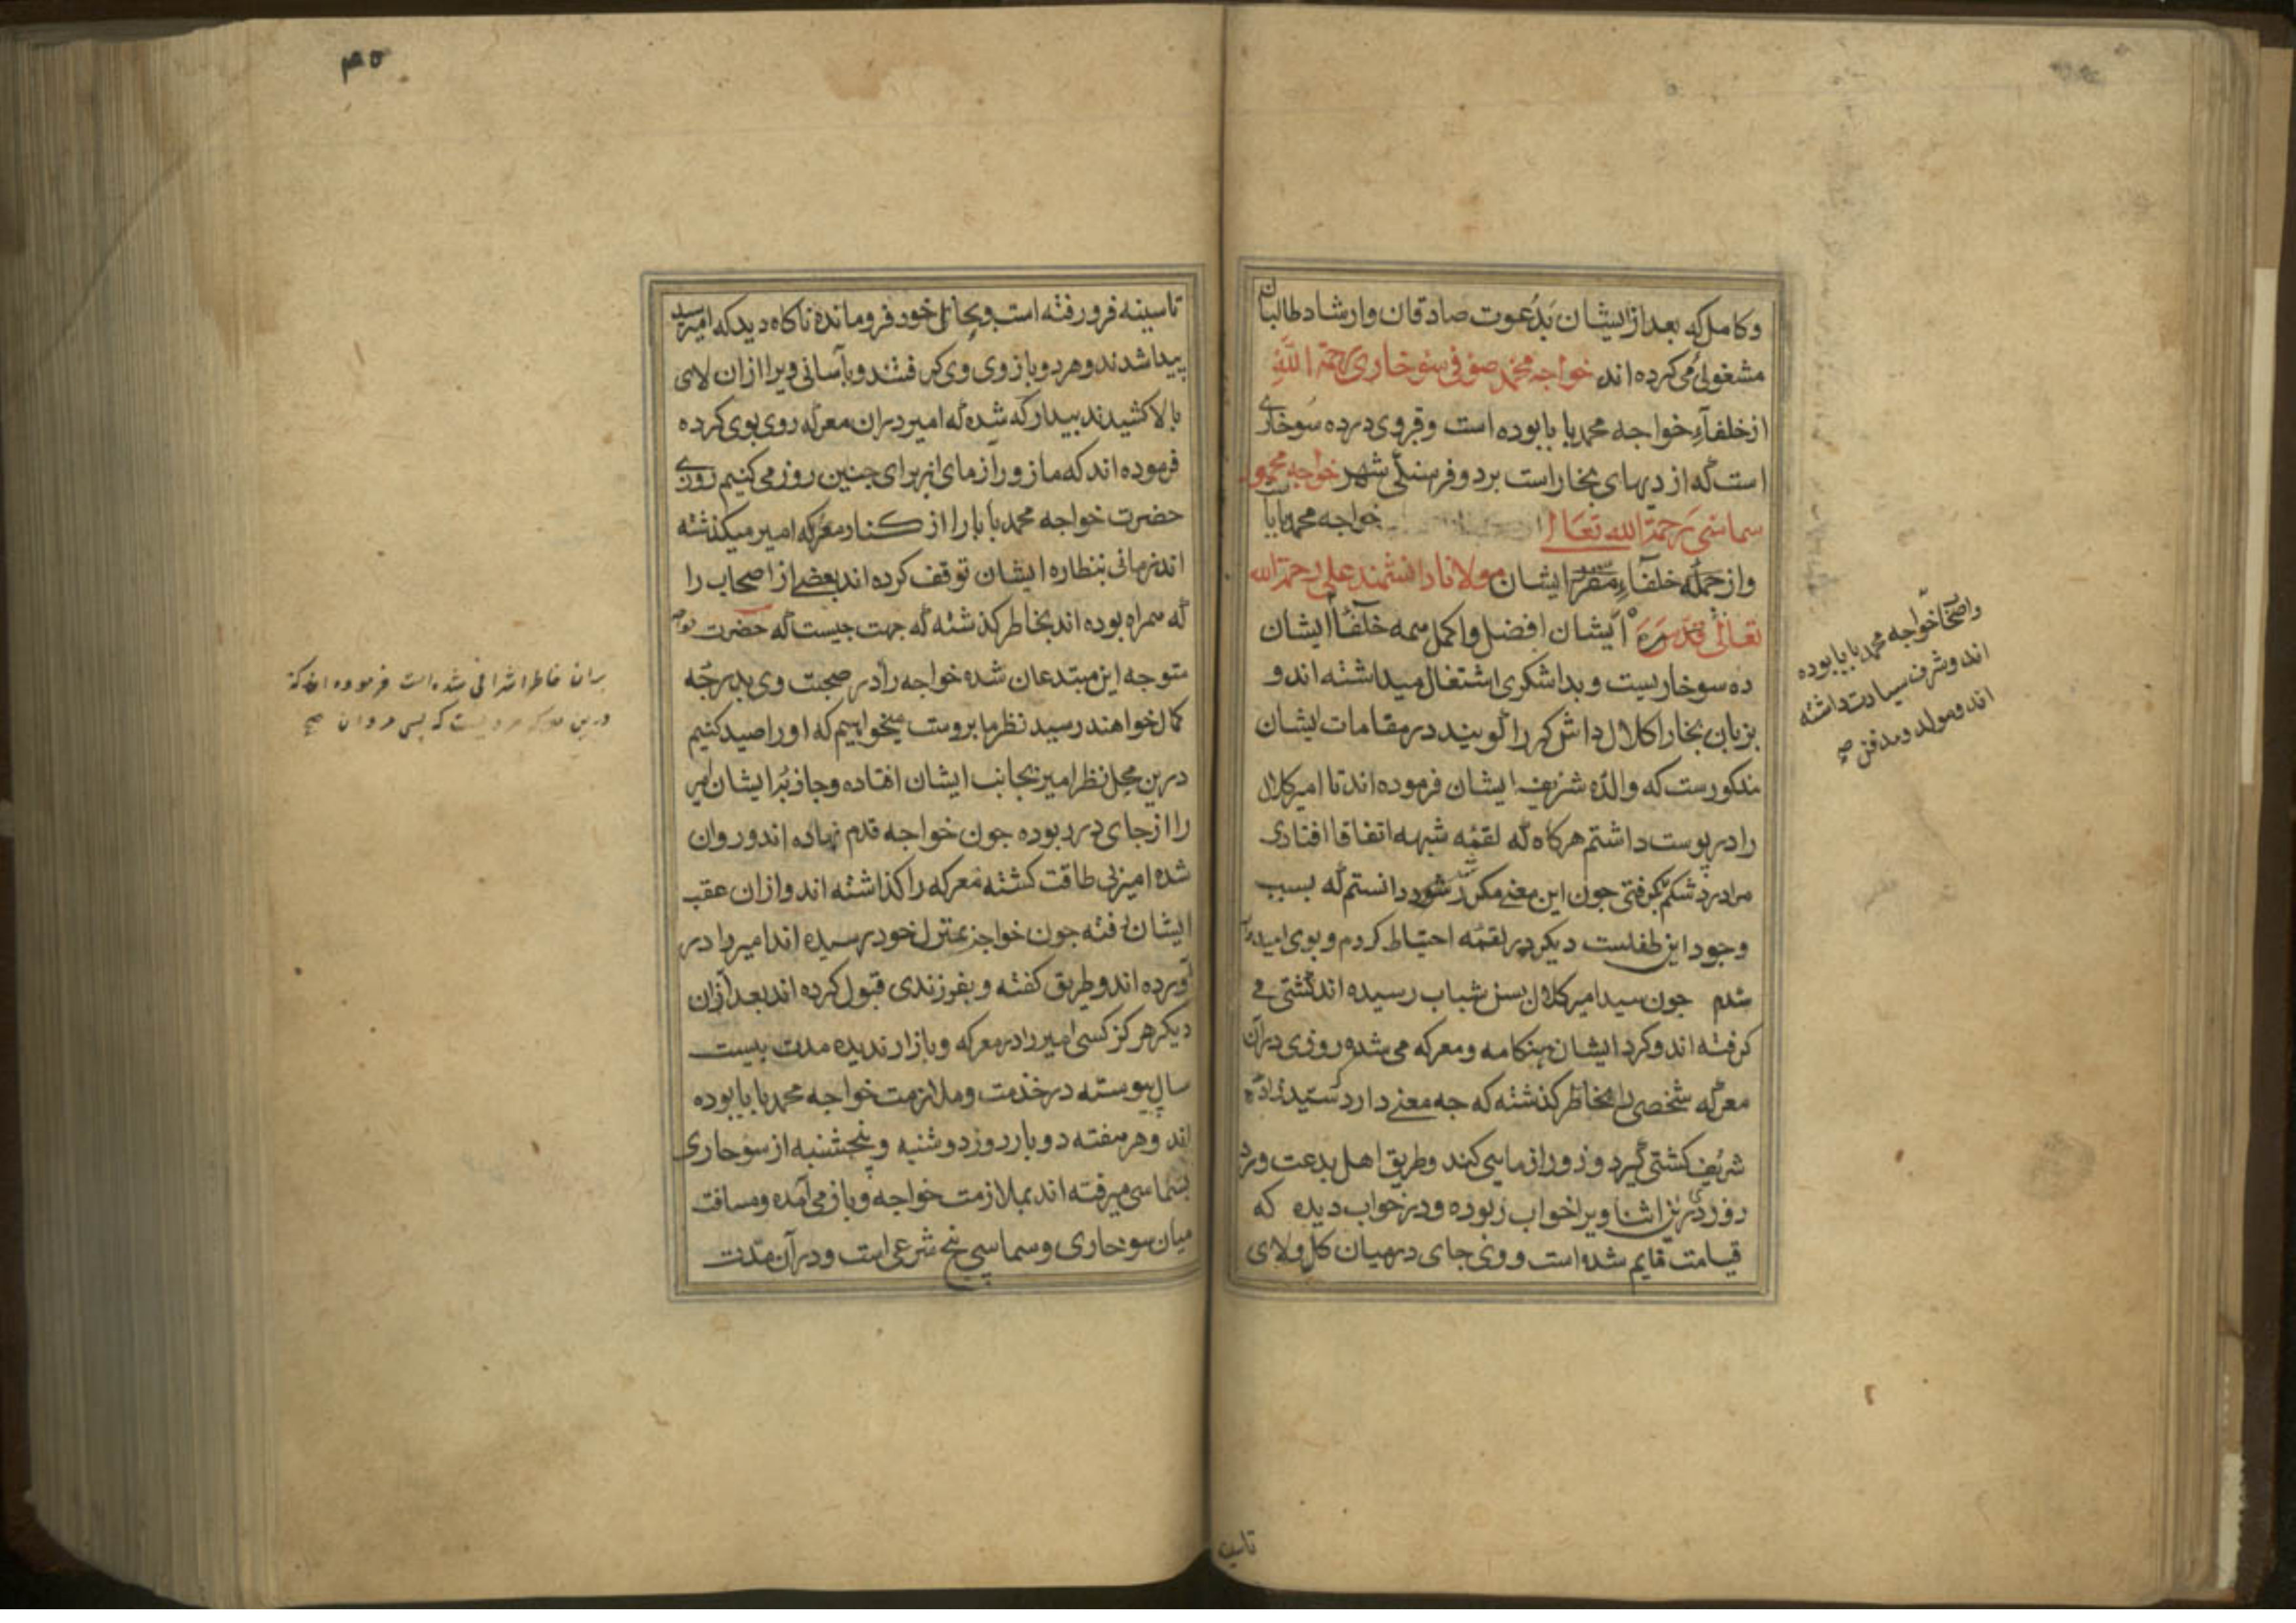 وکامل که بعد از ایشان بدعوت صادقان وارشاد طالبان
مشغولی می کرده اند خواجه محمد صوفی سوخاری رحمة الله
از خلفآء خواجه محمد بابا بوده است وقبر وی در ده سوخاری
است که از دیهای بخار است بر دو فرسنگی شهر خواجه محمود
سماسی رحمة الله تعالی خواجه محمد بابا
واز جمله خلفاء ایشان مولانا دانشمند علی رحمة الله
تعالی ایشان افضل واکمل همه خلفآ ایشان
ده سوخاریست وبداشکری اشتغال میداشته اند و
بزبان بخارا کلال داش کر را گویند در مقامات ایشان
مذکورست که والده شریفه ایشان فرموده اند تا امیر کلال
را در پوست داشتم هرکاه که لقمه شبهه اتفاقا افتادی
مرا درد شکم بگرفتی جون این معنی مکرر شد دانستم که بسبب
وجود این طفلست دیکر در لقمه احتیاط کردم وبوی امیدوار
شدم جون سید امیر کلال بسن شباب رسیده اند کشتی می
کرفته اند وکرد ایشان هنکامه ومعرکه می شده روزی در ان
معرکه شخصی را بخاطر کذشته که جه معنی دارد که سید زاده
شریف کشتی گیرد وزور ازمایی کند وطریق اهل بدعت ورزد
در این اثنا ویرا خواب ربوده ودر خواب دیده که
قیامت قایم شده است ووی جای در میان کل ولای
واصحاب خواجه محمد بابا بوده
اند وشرف سیادت داشته
اند ومولد ومدفن صح
تاسینه
۴۵
تاسینه فرو رفته است وبحال خود فرو مانده ناکاه دید که امیر سید
پیدا شدند وهر دو بازوی وی کرفتند وبآسانی ویرا ازان لای
بالا کشیدند بیدار که شده که امیر دران معرکه روی بوی کرده
فرموده اند که ما زور ازمای از برای جنین روز می کنیم روزی
حضرت خواجه محمد بابا را از کنار معرکه امیر میکذشته
اند زمانی بنظاره ایشان توقف کرده اند بعضی از اصحاب را
که همراه بوده اند بخاطر کذشته که جهت جیست که حضرت خواجه
متوجه این مبتدعان شده خواجه را در صحبت وی بدرجه
کمال خواهند رسید نظر ما بروست میخواهیم که او را صید کنیم
درین محل نظر امیر بجانب ایشان افتاده وجاذبه ایشان امیر
را از جای در ربوده جون خواجه قدم نهاده اند وروان
شده امیر بی طاقت کشته معرکه را کذاشته اند وازان عقب
ایشان رفته جون خواجه بمنزل خود رسیده اند امیر را در
آورده اند وطریق کفته وبفرزندی قبول کرده اند بعد ازان
دیکر هرکز کسی امیر را در معرکه وبازار ندیده مدت بیست
سال پیوسته در خدمت وملازمت خواجه محمد بابا بوده
اند وهر هفته دو بار روز دوشنبه وپنجشنبه از سوخاری
بسماسی میرفته اند بملازمت خواجه وباز می آمده ومسافت
میان سوخاری وسماسی پنج شرعی است ودر آن مدت
بران خاطر اشرافی شده است فرموده اند که
درین معرکه مردیست که بسی مردان صح